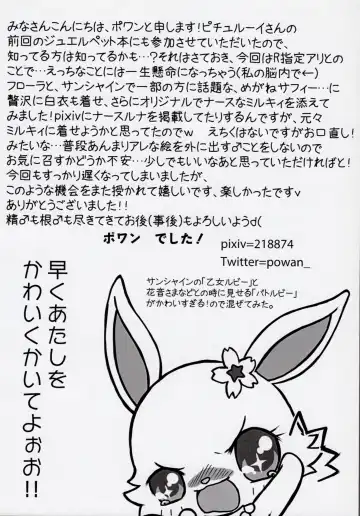 みなさんこんにちは、ポワンと申します!ピチュルーイさんの
前回のジュエルペット本にも参加させていただいたので、
知ってる方は知ってるかも…?それはさておき、今回はR指定アリとの
ことで…えっちなことには一生懸命になっちゃう(私の脳内で←)
フローラと、サンシャインで一部の方に話題な、めがねサフィー…に
贅沢に白衣も着せ、さらにオリジナルでナースなミルキィを添えて
みました!pixivにナースルナを掲載してたりするんですが、元々
ミルキィに着せようかと思ってたのでw えちくはないですがお口直し!
みたいな…普段あんまりアレな絵を外に出す♂ことをしないので
お気に召すかどうか不安…少しでもいいなあと思っていただければと!
今回もすっかり遅くなってしましいましたが、
このような機会をまた授かれて嬉しいです、楽しかったですv
ありがとうございました!!
精♂も根♂も尽きてきてお後(事後)もよろしいようd(
ポワン でした!
pixiv=218874
Twitter=powan_
サンシャインの「乙女ルビー」と
花音さまなどとの時に見せる「バトルビー」
がかわいすぎる!ので混ぜてみた。
早くあたしを
かわいくかいてよぉお!!